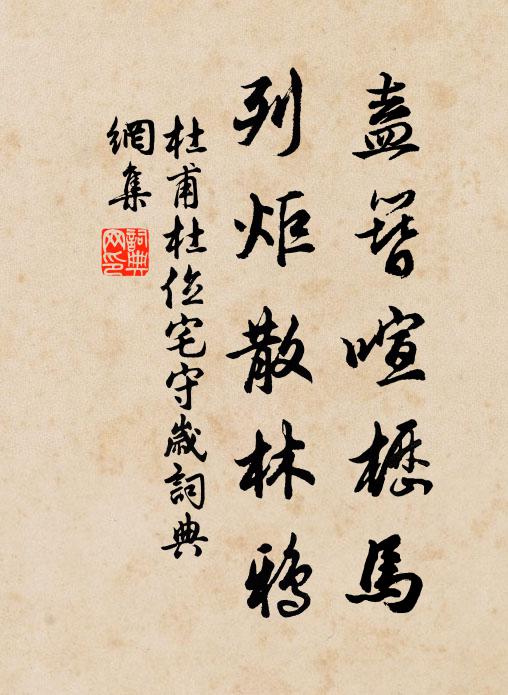 盍簪喧櫪馬
列炬散林鴉
杜甫杜位宅守歲詞典
網集
詞典
网印